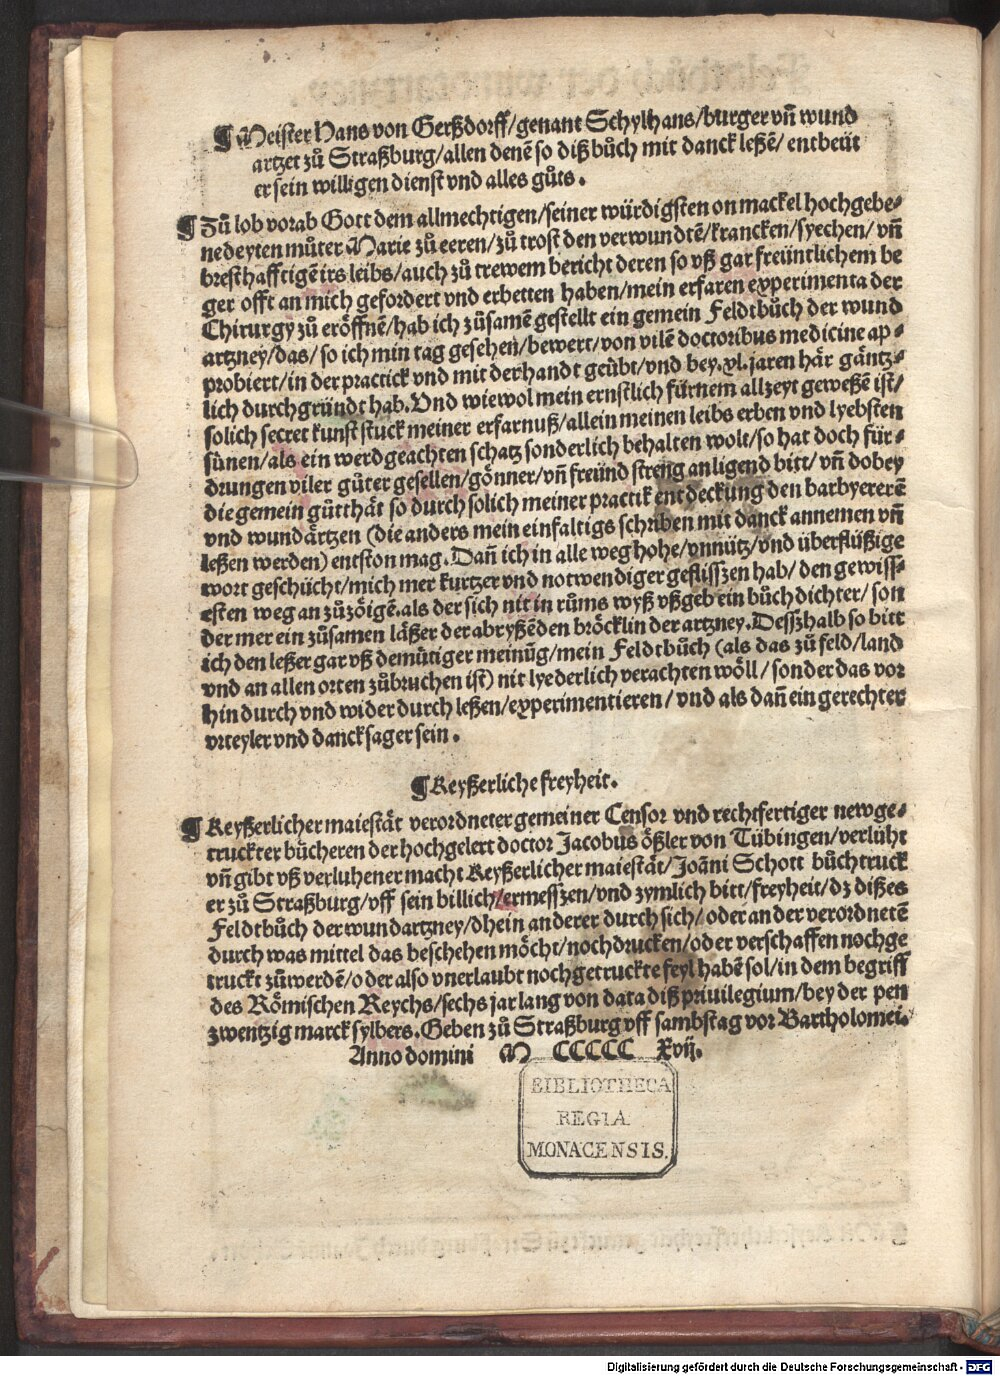 ¶ Meister Hans von Gerßdorff/genant Schylhans/burger vñ wund
artzet zů Straßburg/allen denẽ so diß bůch mit danck leßẽ/ entbeüt
er sein willigen dienst vnd alles gůts.
¶ Zů lob vorab Gott dem allmechtigen/seiner würdigsten on mackel hochgebe⸗
nedeyten můter Marie zů eeren/zů trost den verwundtẽ/krancken/syechen/ vñ
bresthafftigẽ irs leibs/auch zů trewem bericht deren so vß gar freüntlichem be
ger offt an mich gefordert vnd erbetten haben/mein erfaren experimenta der
Chirurgy zů eröffnẽ/hab ich zůsamẽ gestellt ein gemein Feldtbůch der wund
artzney/das/so ich min tag gesehen/bewert/von vilẽ doctoribus medicine ap⸗
probiert/in der practick vnd mit der handt geübt/vnd bey.xl.jaren här gäntz⸗
lich durchgründt hab.Vnd wiewol mein ernstlich fürnem allzeyt geweßẽ ist/
solich secret kunst stuck meiner erfarnuß/allein meinen leibs erben vnd lyebsten
sünen/als ein werdgeachten schatz sonderlich behalten wolt/so hat doch für⸗
drungen viler gůter gesellen/gönner/vñ freünd streng anligend bitt/vñ dobey
die gemein gůtthät so durch solich meiner practik entdeckung den barbyererẽ
vnd wundärtzen (die anders mein einfaltigs schriben mit danck annemen vñ
leßen werden) entston mag.Dañ ich in alle weg hohe/vnnütz/vnd überflüßige
wort geschücht/mich mer kurtzer vnd notwendiger geflisszen hab/ den gewiss⸗
esten weg an zůzöigẽ.als der sich nit in růms wyß vßgeb ein bůch dichter/ son
der mer ein zůsamen läßer der abryßẽden bröcklin der artzney.Desszhalb so bitt
ich den leßer gar vß demůtiger meinũg/mein Feldtbůch (als das zů feld/land
vnd an allen orten zůbruchen ist) nit lyederlich verachten wöll/ sonder das vor
hin durch vnd wider durch leßen/experimentieren/ vnd als dañ ein gerechter
vrteyler vnd dancksager sein.
¶ Keyßerliche freyheit.
¶ Keyßerlicher maiestät verordneter gemeiner Censor vnd rechtfertiger newge⸗
truckter bücheren der hochgelert doctor Jacobus ößler von Tübingen/verlüht
vñ gibt vß verluhener macht Keyßerlicher maiestät/Joãni Schott bůchtruck
er zů Straßburg/vff sein billich/ermesszen/vnd zymlich bitt/freyheit/dz dißes
Feldtbůch der wundartzney/dhein anderer durch sich/ oder an der verordnetẽ
durch was mittel das beschehen möcht/nochdrucken/oder verschaffen nochge
truckt zůwerdẽ/oder also vnerlaubt nochgetruckte feyl habẽ sol/in dem begriff
des Römischen Reychs/sechs jar lang von data diß priuilegium/bey der pen
zwentzig marck sylbers.Geben zů Straßburg vff sambstag vor Bartholomei.
Anno domini M CCCCC Xvij.
BIBLIOTHECA
REGIA
MONACENSIS.
Digitalisierung gefördert durch die Deutsche Forschungsgemeinschaft - DFG